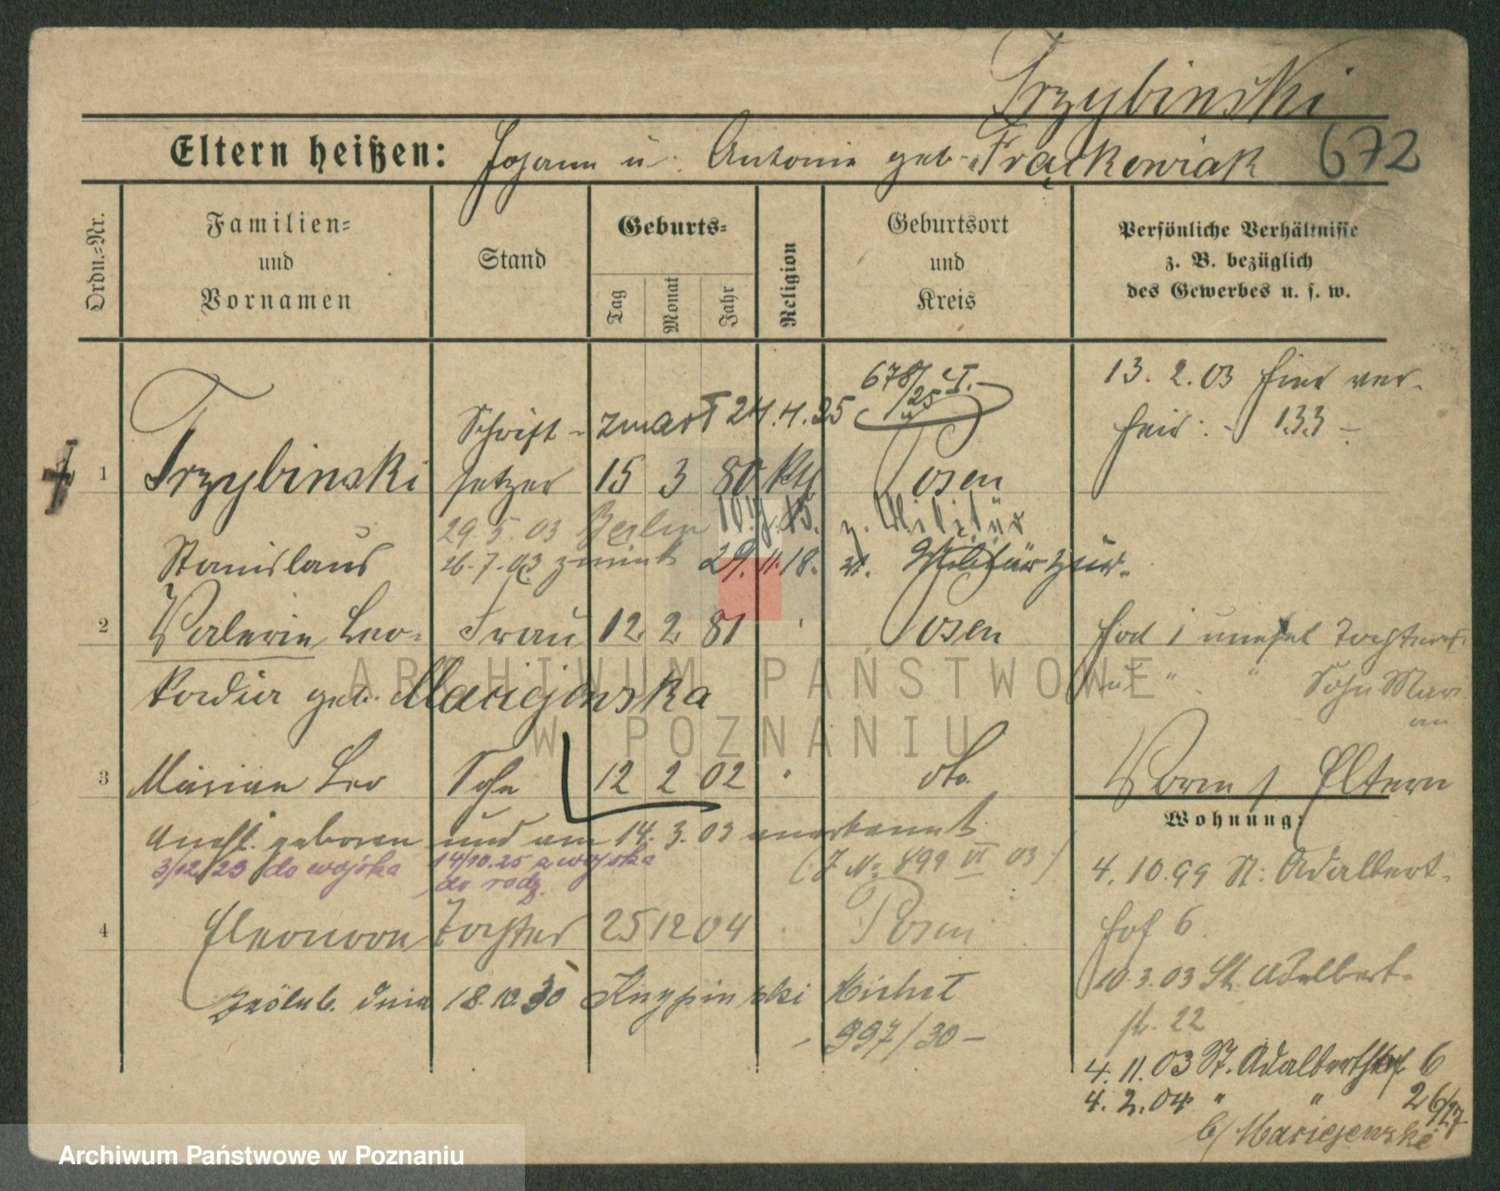 Trzybinski
Eltern heißen: Johann u. Antonie geb. Frąckowiak 672
Ordn.=Nr.
Familien=
und
Vornamen
Stand
Geburts=
Tag
Monat
Jahr
Religion
Geburtsort
und
Kreis
Persönliche Verhältnisse
z. B. bezüglich
des Gewerbes u. s. w.
678/25 I.
13. 2. 03 hier ver-
heir. - 133 -
Schrift- zmarł 24.4.25
1 Trzybinski setzer 15 3 80 kth Posen
29.5.03 Berlin z. Militär
Stanislaus 26.7.03 zurück 29.11.18. v. Militär zur.
2 Valerie Leo- Frau 12. 2. 81 " Posen
kadia geb. Maciejewska
Hat 1 unehel Tochter
" " Sohn Mari
an
3 Marian Leo Sohn 12 2 02 " dto.
Vorm 1 Eltern
Wohnung:
unehl. geboren und am 14.3.03 anerkannt
(J No 899 VI 03)
3/12.23 do wojska 14/10.25 z wojska
do rodz.
4. 10. 99 St. Adalbert-
hof 6
4 Eleonora Tochter 25 12 04 Posen
10.3.03 St. Adalbert-
str. 22
zaślub. dnia 18.10.30 Knypinski Michał
- 997/30 -
4. 11. 03 St. Adalbertstr. 6
4. 2. 04 " " 26/27
b/ Maciejewski
ARCHIWUM PAŃSTWOWE
W POZNANIU
Archiwum Państwowe w Poznaniu